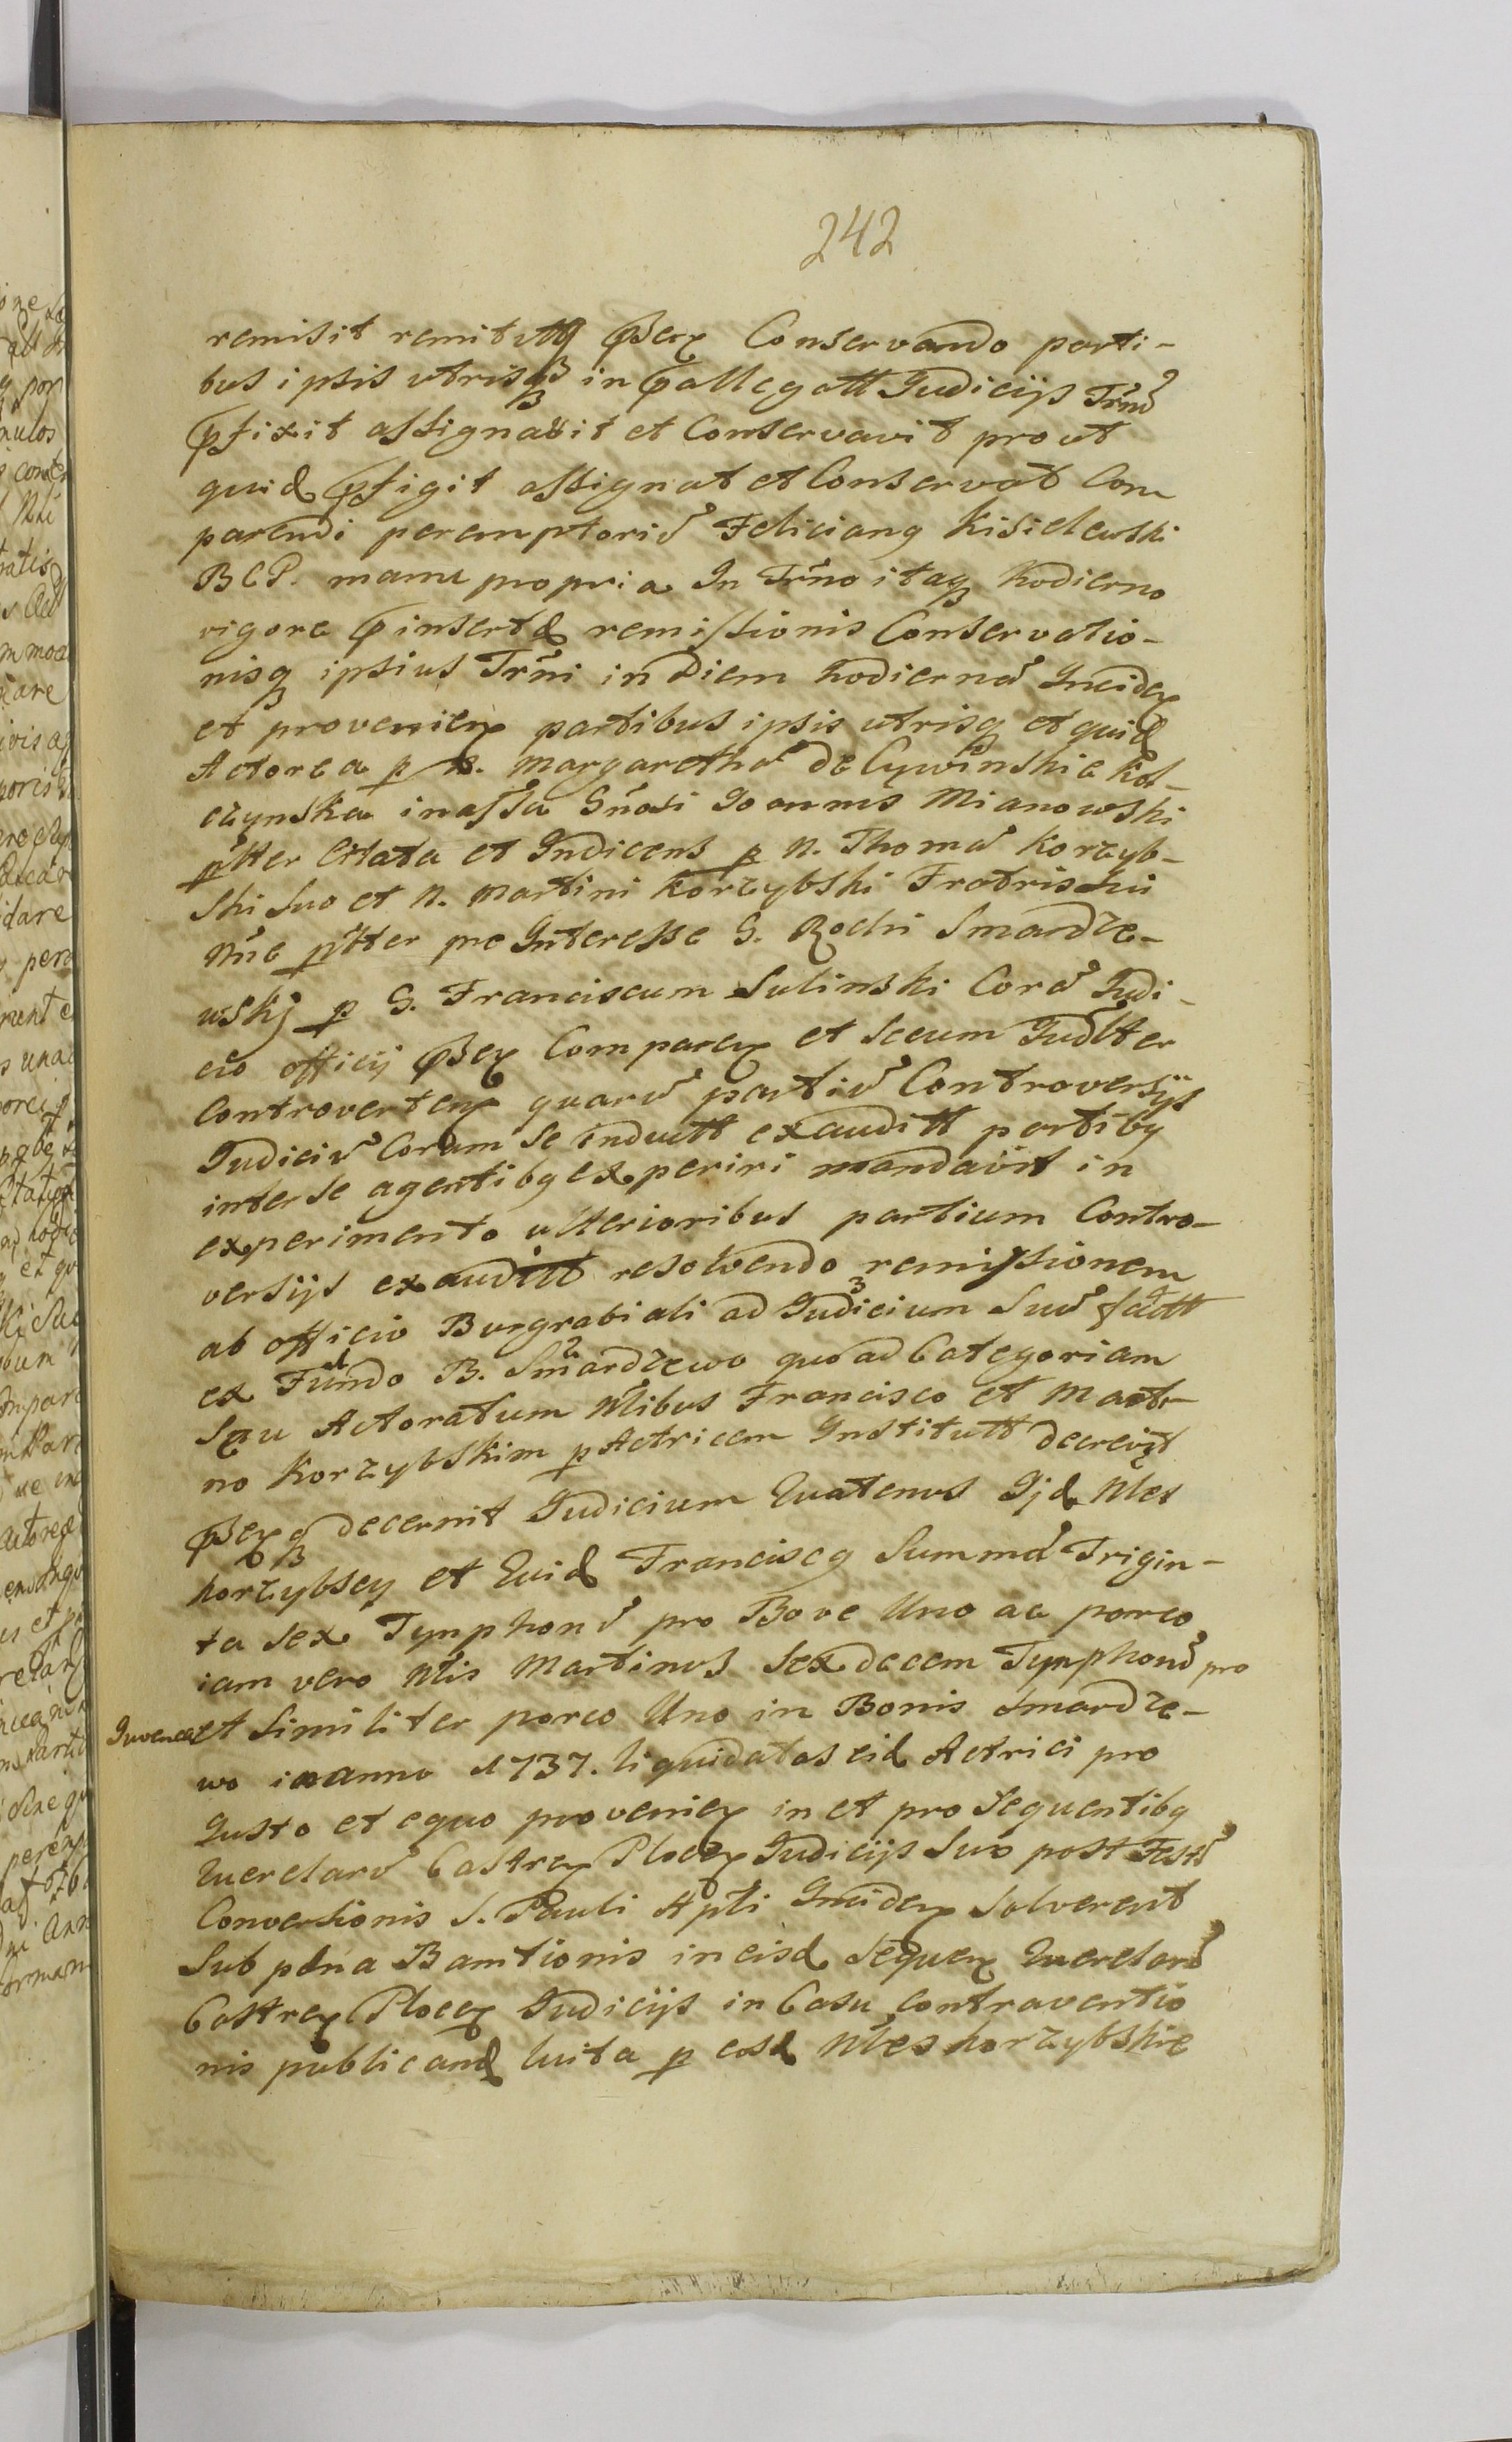 242
remisit remit uttq psex Conservando parti-
bus ipsis utrisq in pallegatt Judicijs Trnũ
pfixit assignavit et Conservavit prout
quid pfigit assignat et Conservat Com
parendi peremptoriũ Felicianq Kisielewski
BCP. manu propria In Trno itaq hodierno
vigore pinsertæ remissionis Conservatio-
nisq ipsius Trni in diem hodiernã Incidex
et proveniex partibus ipsis utrisq et quid
Actorea p N. Margarethã de Cywinskie Kol-
czynska in assa Gnosi Joannis Mianowski
pltter Citata et Indicens p N. Thomã Korzyb-
ski suo et N. Martini Korzybski Fratris sui
nne pltter pre Interesse G. Rochi Smardze-
wskj p G. Franciscum Sulinski Corã Judi-
cio officij psex Comparex et secum Judltter
Controvertex quarũ partiũ Controversijs
Judiciũ Coram se inductt exauditt partibq
inter se agentibq experiri mandavit in
experimento ulterioribus partium Contro-
versijs exauditt resolvendo remissionem
ab officio Burgrabiali ad Judicium Suũ factt
ex Fundo B. Smardzewo quoad Categoriam
seu Actoratum Nlibus Francisco et Marti-
no Korzybskim p Actricem Institutt decrevit
psexq decernit Judicium Quatenus Ijd Nles
Korzybscy et Quid Franciscq Summã Trigin-
ta sex Tynphonũ pro Bove Uno ac porco
iam vero Nlis Martinus sexdecem Tynphonũ pro
Juvenca et similiter porco Uno in Bonis Smardze-
wo in anno 1737. liquidatas eid Actrici pro
Justo et equo proveniex in et pro sequentibq
Querelarũ Castrex Plocex Judicijs suo post Festũ
Conversionis S. Pauli Apli Incidex solverent
sub pæna Banitionis in eisd sequex Querelarũ
Castrex Plocex Judicijs in Casu Contraventio
nis publicand luita p eosd Nles Korzybskie